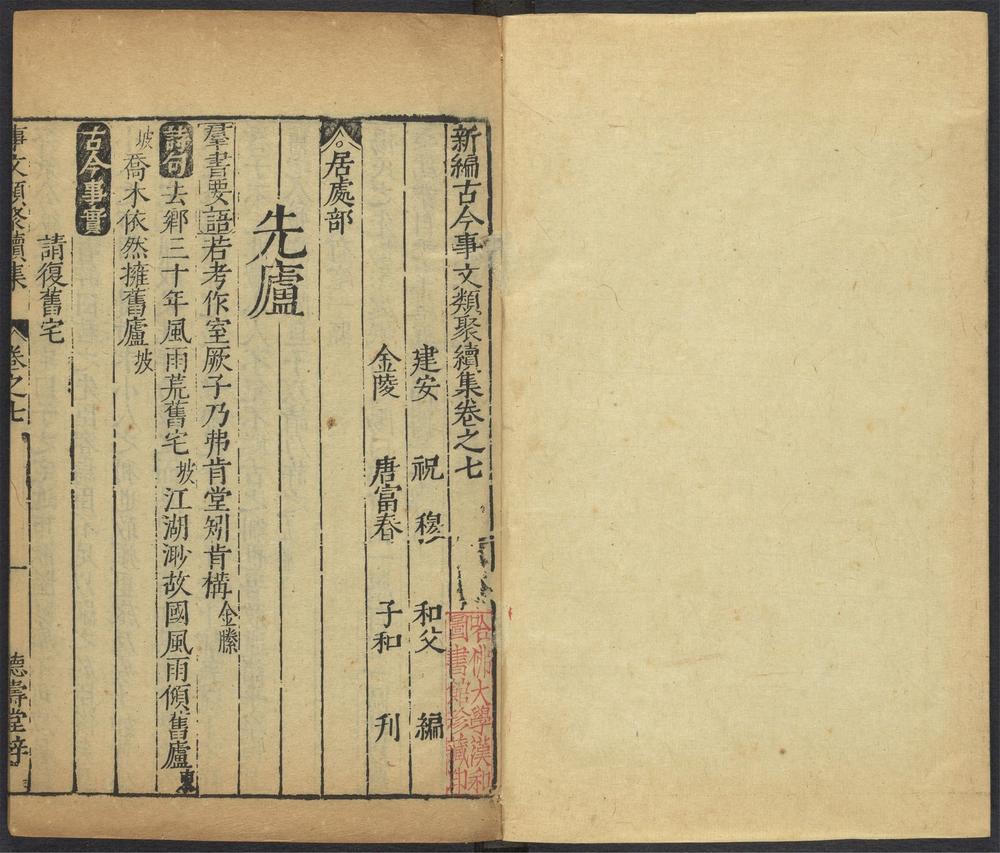 新編古今事文類聚續集卷之七
建安 祝 穆 和父 編
金陵 唐富春 子和 刊
居處部
先廬
羣書要語 若考作室厥子乃弗肯堂矧肯構 金縢
詩句 去鄉三十年風雨荒舊宅 坡 江湖渺故國風雨傾舊廬 東
坡 喬木依然擁舊廬 坡
古今事實
請復舊宅
事文類聚續集 卷之七 一 德壽堂梓
哈佛大學漢和
圖書館珍藏印